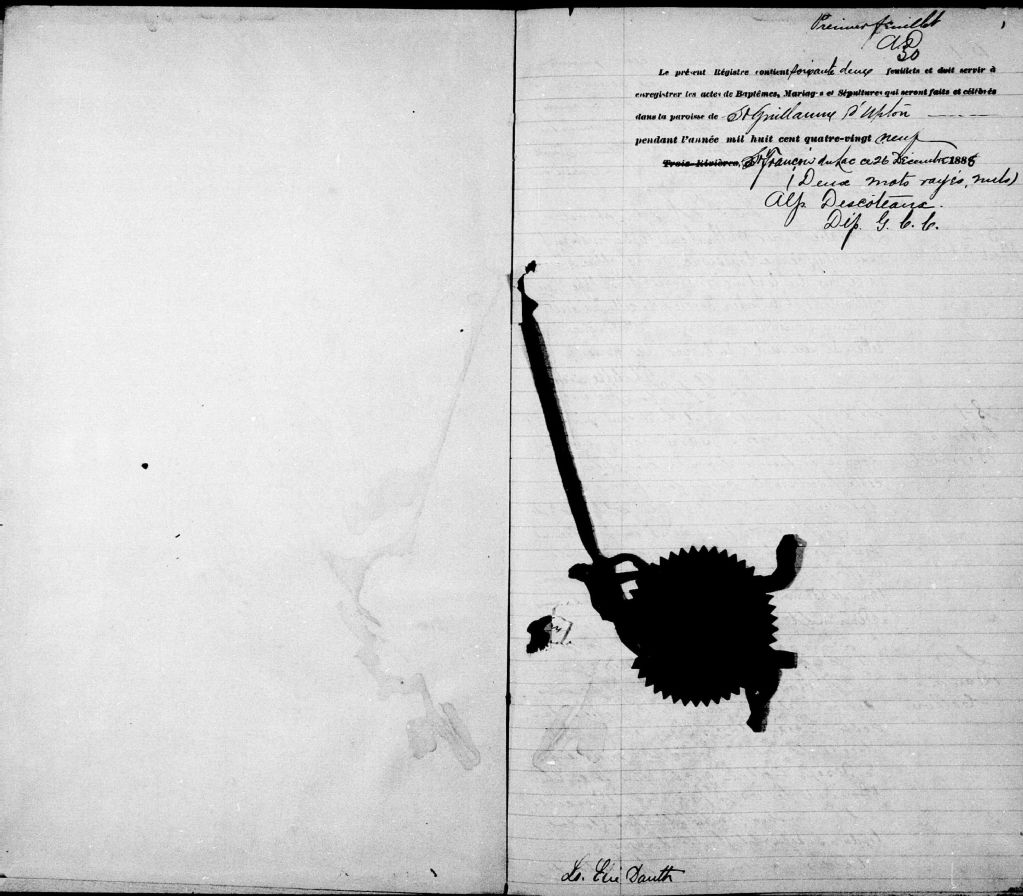 Premier feuillet
A D
30
Le présent Régistre contient soixante deux feuillets et doit servir à
enregistrer les actes de Baptêmes, Mariages et Sépultures qui seront faits et célébrés
dans la paroisse de St Guillaume d'Upton
pendant l'année mil huit cent quatre-vingt neuf
Trois-Rivières, St François du Lac ce 26 Décembre 1888
(Deux mots rayés, nuls)
Alp. Descôteaux.
Dép. G. C. C.